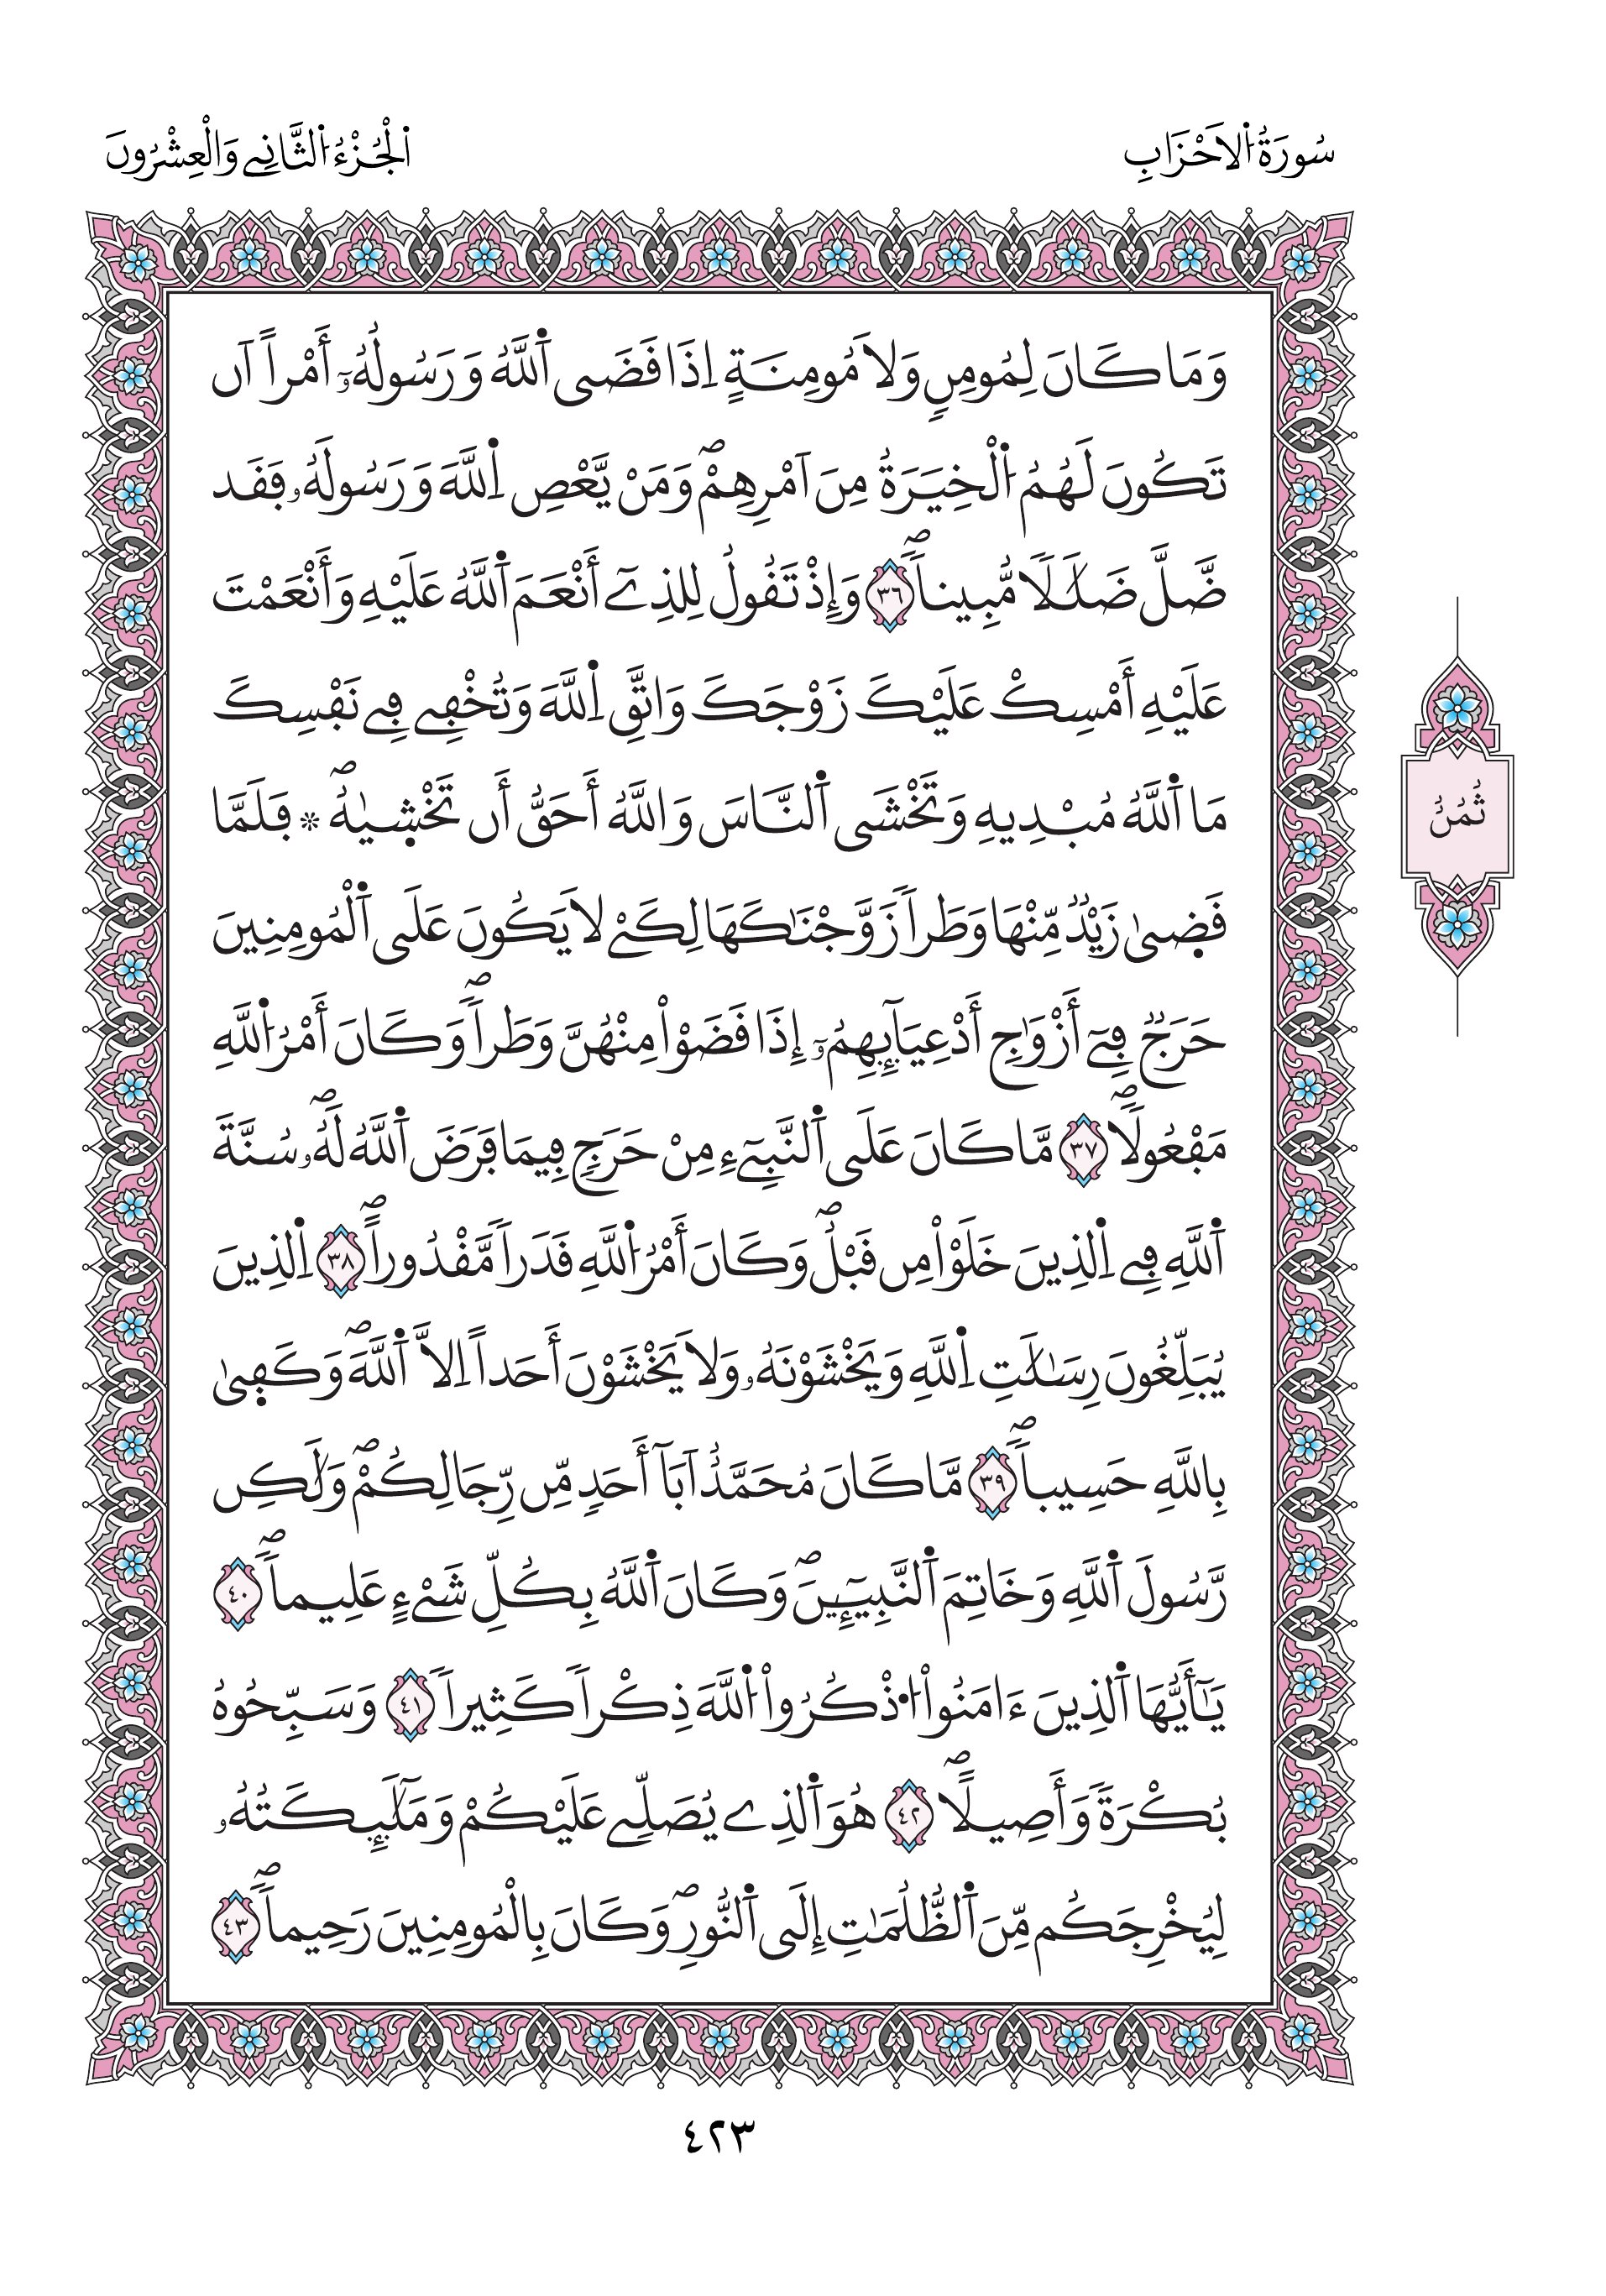 سُورَةُ الَاحْزَابِ
الْجُزْءُ الثَّانِے وَالْعِشْرُونَ
وَمَا كَانَ لِمُومِنٖ وَلَا مُومِنَةٍ اِذَا قَضَى اَ۬للَّهُ وَرَسُولُهُۥٓ أَمْراً اَن
تَكُونَ لَهُمُ اُ۬لْخِيَرَةُ مِنَ اَمْرِهِمْۖ وَمَنْ يَّعْصِ اِ۬للَّهَ وَرَسُولَهُۥ فَقَد
ضَّلَّ ضَلَٰلاٗ مُّبِيناٗۖ ٣٦ وَإِذْ تَقُولُ لِلذِےٓ أَنْعَمَ اَ۬للَّهُ عَلَيْهِ وَأَنْعَمْتَ
عَلَيْهِ أَمْسِكْ عَلَيْكَ زَوْجَكَ وَاتَّقِ اِ۬للَّهَ وَتُخْفِے فِے نَفْسِكَ
مَا اَ۬للَّهُ مُبْدِيهِ وَتَخْشَى اَ۬لنَّاسَ وَاللَّهُ أَحَقُّ أَن تَخْش۪يٰهُۖ ۞ فَلَمَّا
قَض۪ىٰ زَيْدٞ مِّنْهَا وَطَراٗ زَوَّجْنَٰكَهَا لِكَےْ لَا يَكُونَ عَلَى اَ۬لْمُومِنِينَ
حَرَجٞ فِےٓ أَزْوَٰجِ أَدْعِيَآئِهِمُۥٓ إِذَا قَضَوْاْ مِنْهُنَّ وَطَراٗۖ وَكَانَ أَمْرُ اُ۬للَّهِ
مَفْعُولاٗۖ ٣٧ مَّا كَانَ عَلَى اَ۬لنَّبِےٓءِ مِنْ حَرَجٖ فِيمَا فَرَضَ اَ۬للَّهُ لَهُۥۖ سُنَّةَ
اَ۬للَّهِ فِے اِ۬لذِينَ خَلَوْاْ مِن قَبْلُۖ وَكَانَ أَمْرُ اُ۬للَّهِ قَدَراٗ مَّقْدُوراًۖ ٣٨ اِ۬لذِينَ
يُبَلِّغُونَ رِسَٰلَٰتِ اِ۬للَّهِ وَيَخْشَوْنَهُۥ وَلَا يَخْشَوْنَ أَحَداً اِلَّا اَ۬للَّهَۖ وَكَف۪ىٰ
بِاللَّهِ حَسِيباٗۖ ٣٩ مَّا كَانَ مُحَمَّدٌ اَبَآ أَحَدٖ مِّن رِّجَالِكُمْۖ وَلَٰكِن
رَّسُولَ اَ۬للَّهِ وَخَاتِمَ اَ۬لنَّبِيٓـِٕينَۖ وَكَانَ اَ۬للَّهُ بِكُلِّ شَےْءٍ عَلِيماٗۖ ٤٠
يَٰٓأَيُّهَا اَ۬لذِينَ ءَامَنُواْ اُ۟ذْكُرُواْ اُ۬للَّهَ ذِكْراٗ كَثِيراٗ ٤١ وَسَبِّحُوهُ
بُكْرَةٗ وَأَصِيلاًۖ ٤٢ هُوَ اَ۬لذِے يُصَلِّے عَلَيْكُمْ وَمَلَٰٓئِكَتُهُۥ
لِيُخْرِجَكُم مِّنَ اَ۬لظُّلُمَٰتِ إِلَى اَ۬لنُّورِۖ وَكَانَ بِالْمُومِنِينَ رَحِيماٗۖ ٤٣
ثُمُنُ
٤٢٣